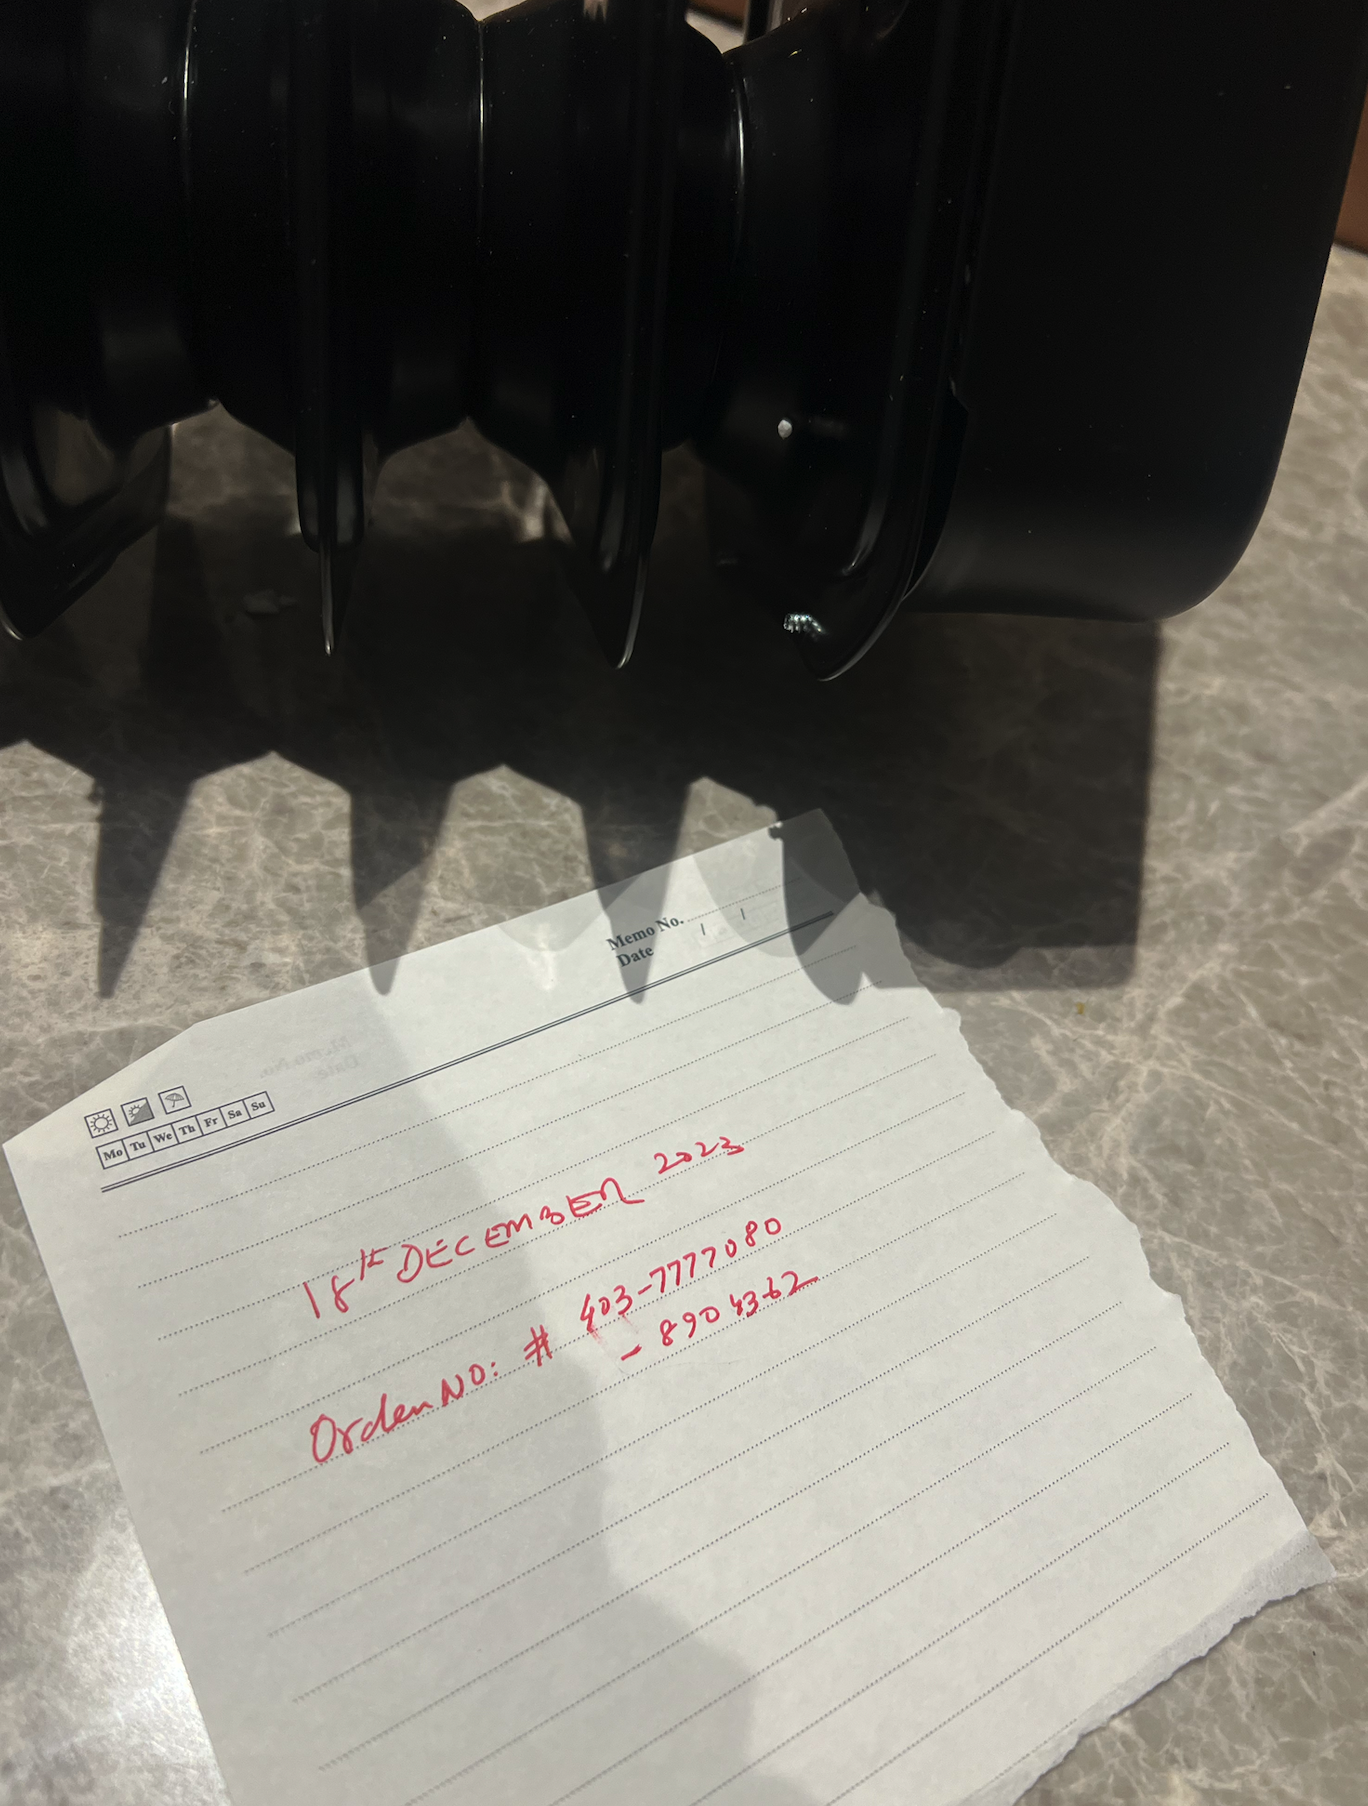 Memo No.
Date / /
Mo Tu We Th Fr Sa Su
18th DECEMBER 2023
Order NO: # 403-7777080
- 8904362